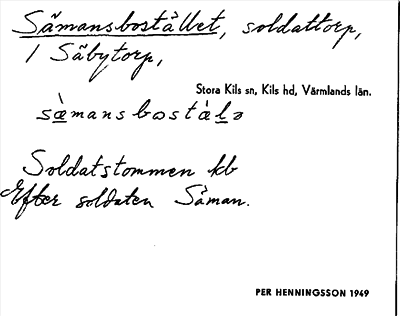 Såmansbostället, soldattorp,
/ Såbytorp,
Stora Kils sn, Kils hd, Värmlands län.
sæ̀mansbostälə
Soldatstommen kb
Efter soldaten Såman.
PER HENNINGSSON 1949